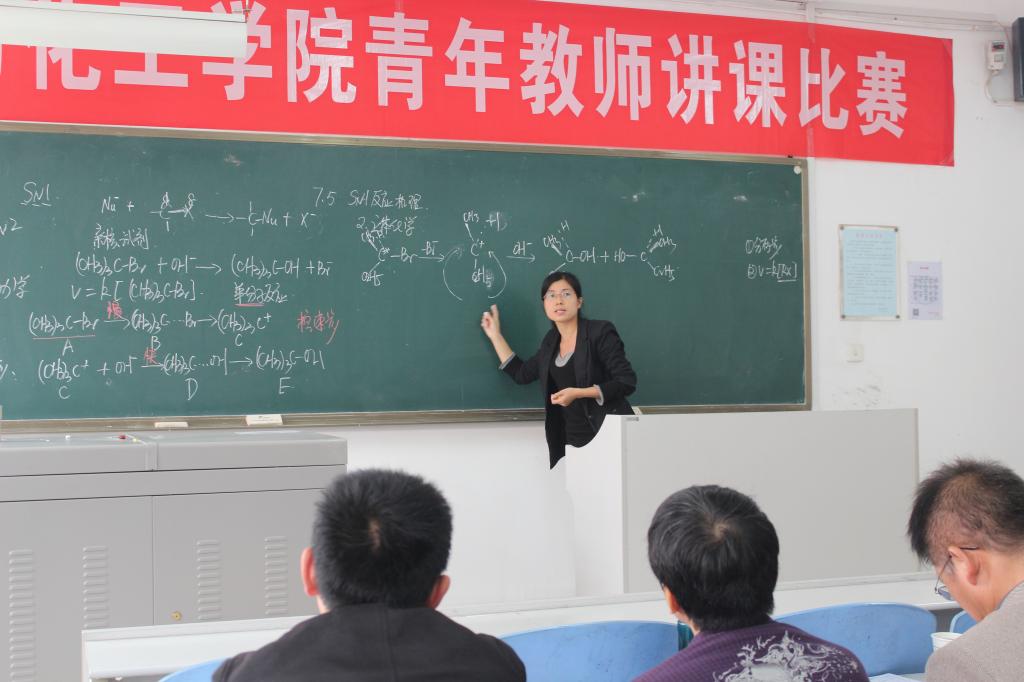 化工学院青年教师讲课比赛
SN1
Nu⁻ + -C-X → -C-Nu + X⁻
亲核试剂
(CH3)3C-Br + OH⁻ → (CH3)3C-OH + Br⁻
V = k[(CH3)3C-Br] 单分子反应
(CH3)3C-Br 慢→ (CH3)3C…Br → (CH3)3C⁺
A B C
(CH3)3C⁺ + OH⁻ 快→ (CH3)3C…OH → (CH3)3C-OH
C D E
7.5 SN1反应机理
2. 立体化学
CH3 H C-Br -Br⁻→ CH3 H C⁺ C2H5 OH⁻→ CH3 H C-OH + HO-C H CH3 C2H5
C2H5
①分两步
②V=k[RX]